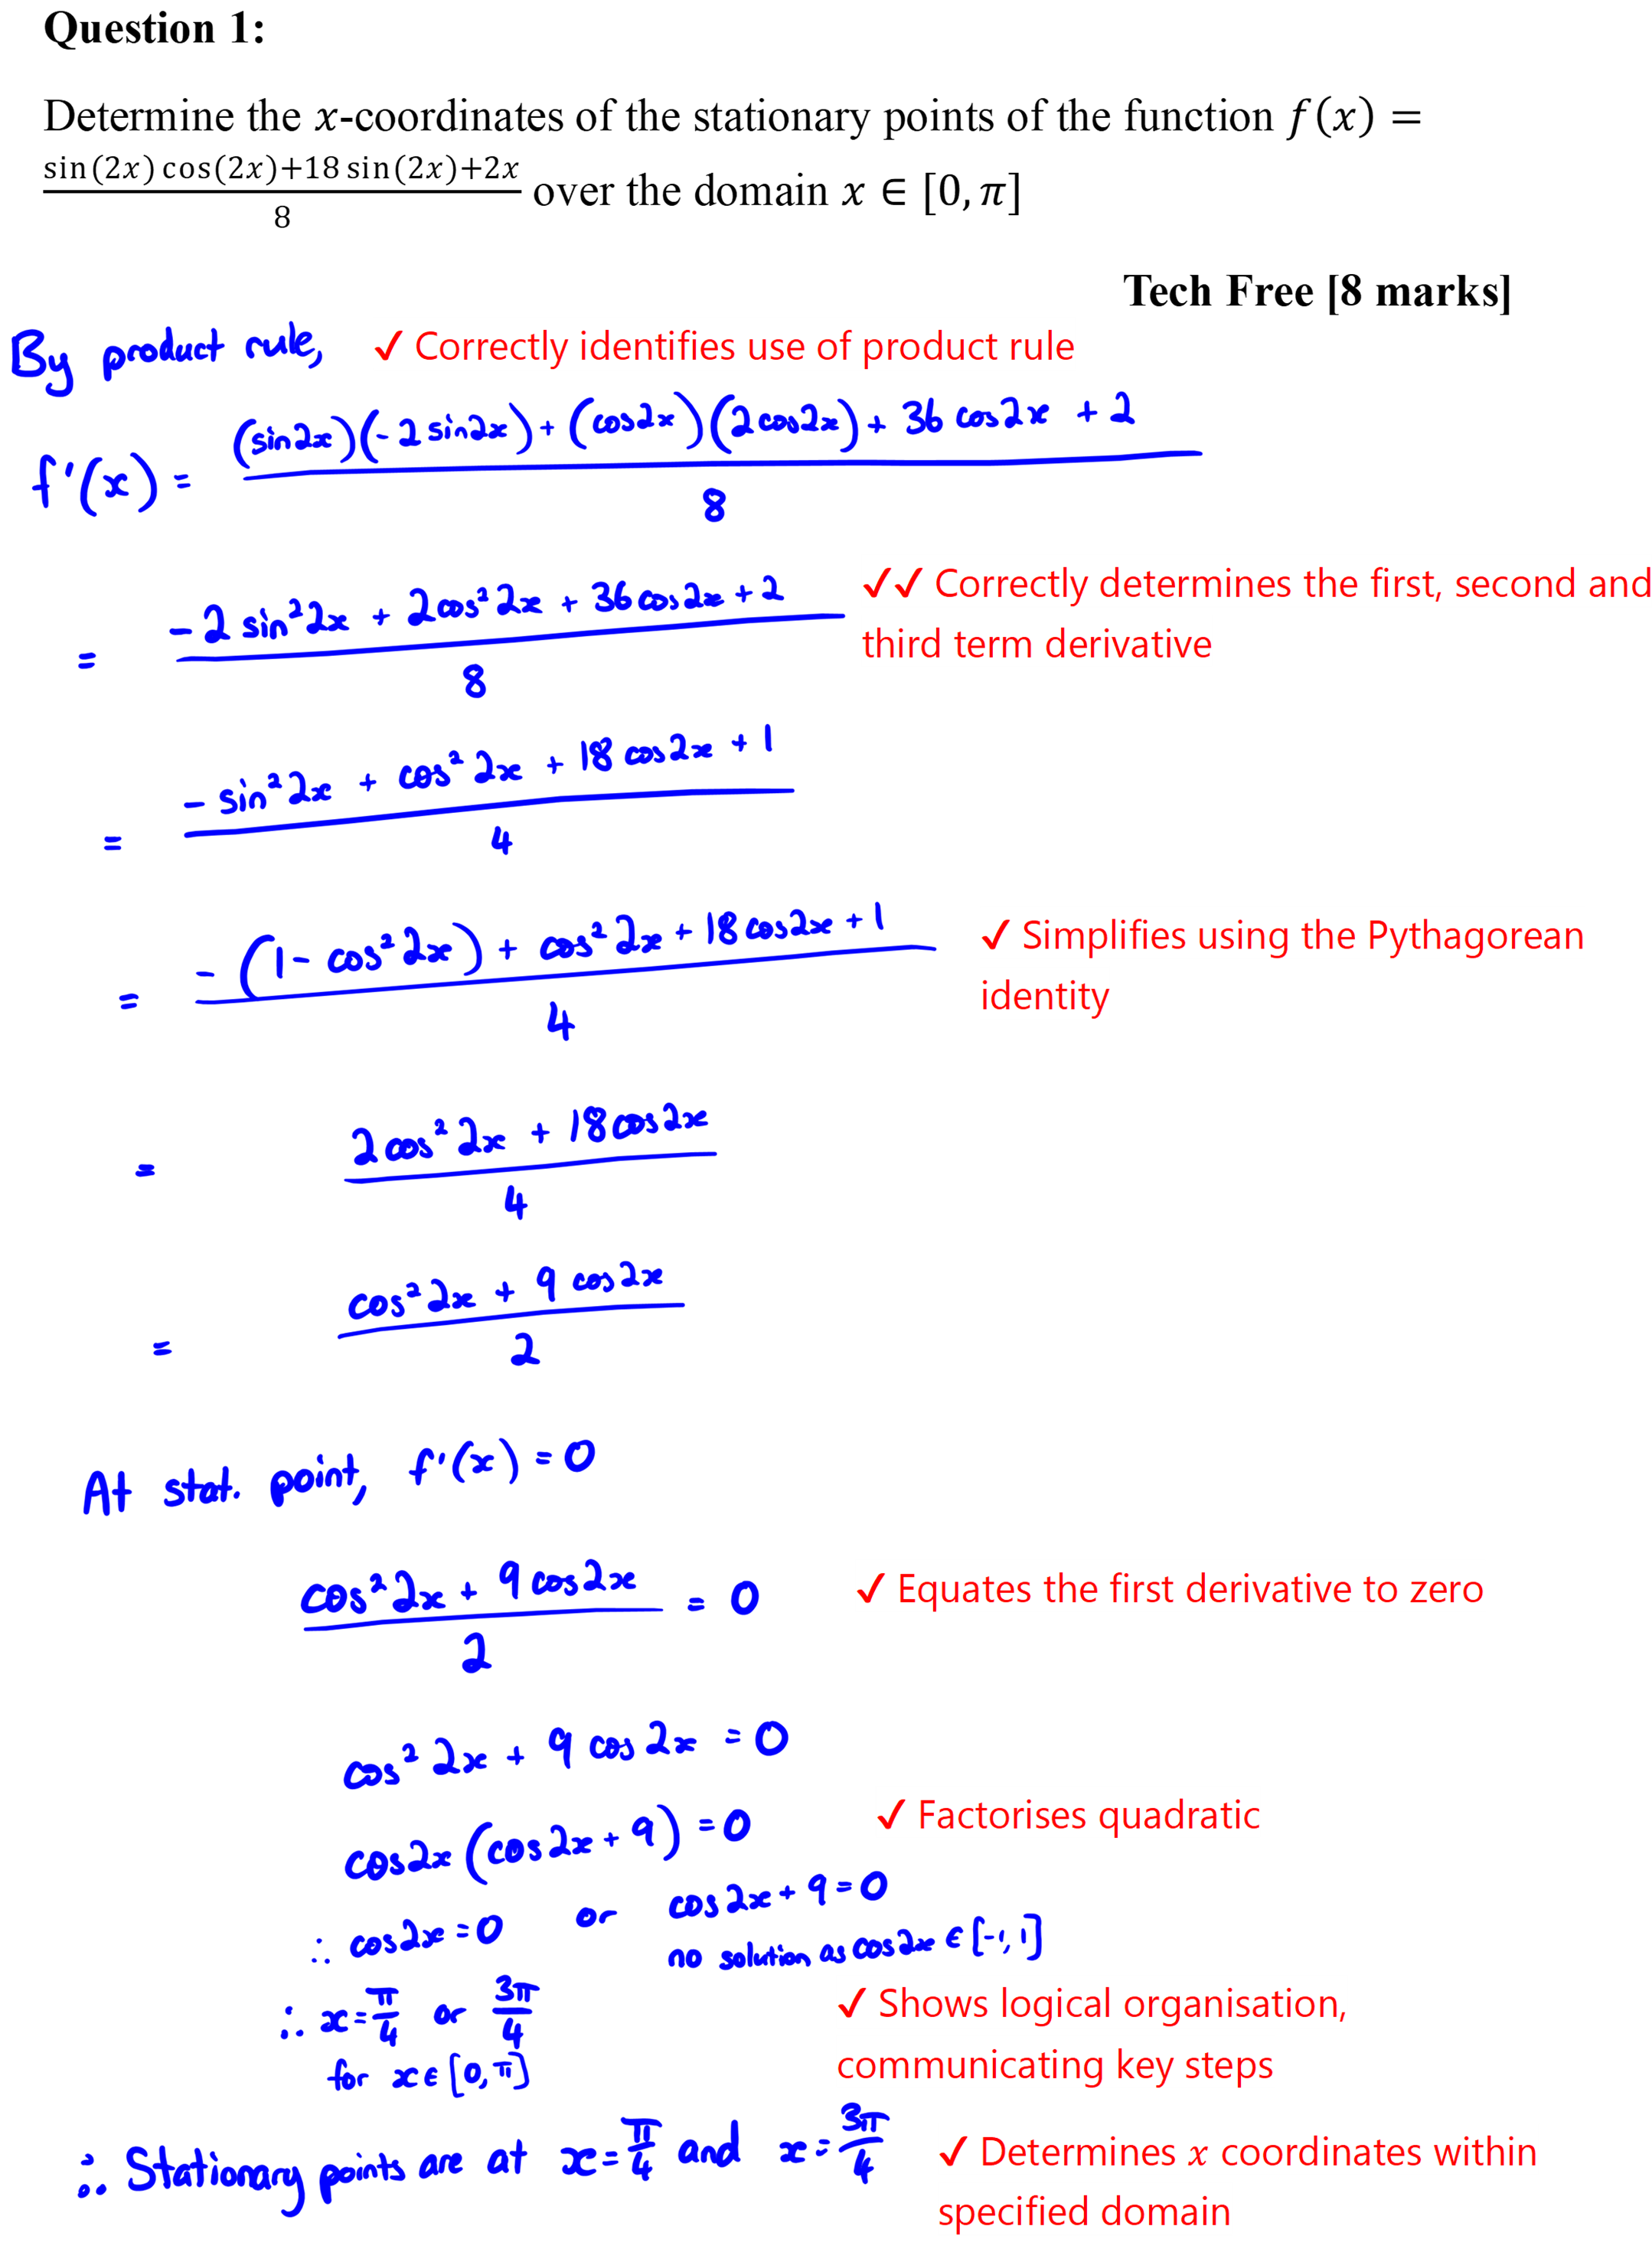 Question 1:
Determine the x-coordinates of the stationary points of the function f(x) =
sin(2x) cos(2x)+18 sin(2x)+2x / 8 over the domain x ∈ [0, π]
Tech Free [8 marks]
By product rule, ✓ Correctly identifies use of product rule
f'(x) = (sin2x)(-2sin2x) + (cos2x)(2cos2x) + 36 cos2x + 2 / 8
= -2 sin²2x + 2cos²2x + 36cos2x + 2 / 8 ✓✓ Correctly determines the first, second and
third term derivative
= -sin²2x + cos²2x + 18 cos2x + 1 / 4
= -(1 - cos²2x) + cos²2x + 18cos2x + 1 / 4 ✓ Simplifies using the Pythagorean
identity
= 2cos²2x + 18cos2x / 4
= cos²2x + 9 cos2x / 2
At stat. point, f'(x) = 0
cos²2x + 9cos2x / 2 = 0 ✓ Equates the first derivative to zero
cos²2x + 9 cos2x = 0
cos2x (cos2x + 9) = 0 ✓ Factorises quadratic
∴ cos2x = 0 or cos2x + 9 = 0
no solution as cos2x ∈ [-1, 1]
∴ x = π/4 or 3π/4 ✓ Shows logical organisation,
for x ∈ [0, π] communicating key steps
∴ Stationary points are at x = π/4 and x = 3π/4 ✓ Determines x coordinates within
specified domain